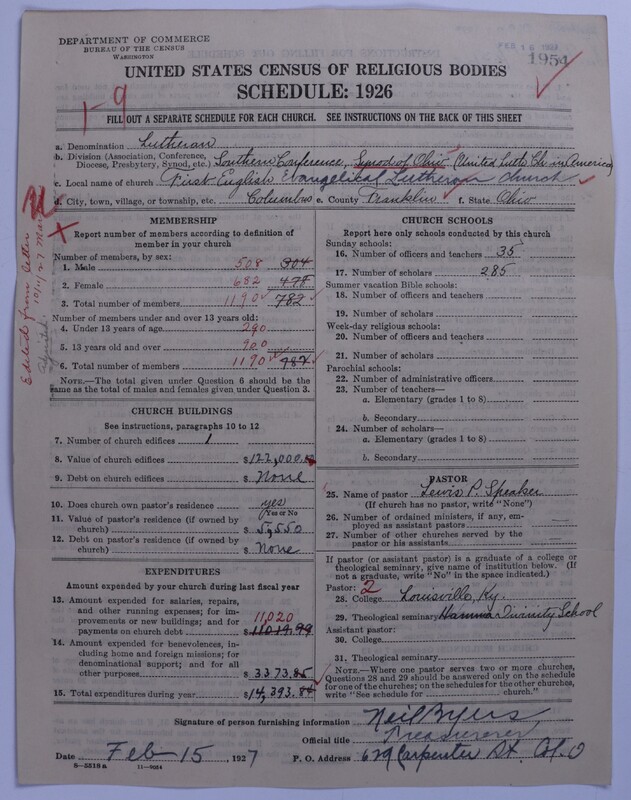 DEPARTMENT OF COMMERCE
BUREAU OF THE CENSUS
WASHINGTON
FEB 16 1927
1954
UNITED STATES CENSUS OF RELIGIOUS BODIES
SCHEDULE: 1926
1-9
FILL OUT A SEPARATE SCHEDULE FOR EACH CHURCH. SEE INSTRUCTIONS ON THE BACK OF THIS SHEET
a. Denomination Lutheran
b. Division (Association, Conference, Diocese, Presbytery, Synod, etc.) Southern Conference, Synod of Ohio (United Luth. Ch. in America)
c. Local name of church First English Evangelical Lutheran Church
d. City, town, village, or township, etc. Columbus e. County Franklin f. State Ohio
Edited from letter
10/11/27
MEMBERSHIP
Report number of members according to definition of
member in your church
Number of members, by sex:
1. Male 508 304
2. Female 682 478
3. Total number of members 1190 782
Number of members under and over 13 years old:
4. Under 13 years of age 290
5. 13 years old and over 900
6. Total number of members 1190 782
NOTE.—The total given under Question 6 should be
same as the total of males and females given under Question 3.
CHURCH BUILDINGS
See instructions, paragraphs 10 to 12
7. Number of church edifices 1
8. Value of church edifices $122,000.00
9. Debt on church edifices $ None
10. Does church own pastor's residence yes
Yes or No
11. Value of pastor's residence (if owned by
church) $ 5,550
12. Debt on pastor's residence (if owned by
church) $ None
EXPENDITURES
Amount expended by your church during last fiscal year
13. Amount expended for salaries, repairs,
and other running expenses; for im-
provements or new buildings; and for 11,020
payments on church debt $ 11019.99
14. Amount expended for benevolences, in-
cluding home and foreign missions; for
denominational support; and for all
other purposes $ 3373.85
15. Total expenditures during year $14,393.84
CHURCH SCHOOLS
Report here only schools conducted by this church
Sunday schools:
16. Number of officers and teachers 35
17. Number of scholars 285
Summer vacation Bible schools:
18. Number of officers and teachers
19. Number of scholars
Week-day religious schools:
20. Number of officers and teachers
21. Number of scholars
Parochial schools:
22. Number of administrative officers
23. Number of teachers—
a. Elementary (grades 1 to 8)
b. Secondary
24. Number of scholars—
a. Elementary (grades 1 to 8)
b. Secondary
PASTOR
25. Name of pastor Lewis P. Speaker
(If church has no pastor, write "None")
26. Number of ordained ministers, if any, em-
ployed as assistant pastors
27. Number of other churches served by the
pastor or his assistants
If pastor (or assistant pastor) is a graduate of a college or
theological seminary, give name of institution below. (If
not a graduate, write "No" in the space indicated.)
Pastor: 2
28. College Louisville, Ky.
29. Theological seminary Hamma Divinity School
Assistant pastor:
30. College
31. Theological seminary
NOTE.—Where one pastor serves two or more churches,
Questions 28 and 29 should be answered only on the schedule
for one of the churches; on the schedules for the other churches,
write "See schedule for church."
Signature of person furnishing information Neil Byers
Official title Treasurer
Date Feb-15, 1927 P. O. Address 629 Carpenter St. Col. O
8-5518a 11-9024